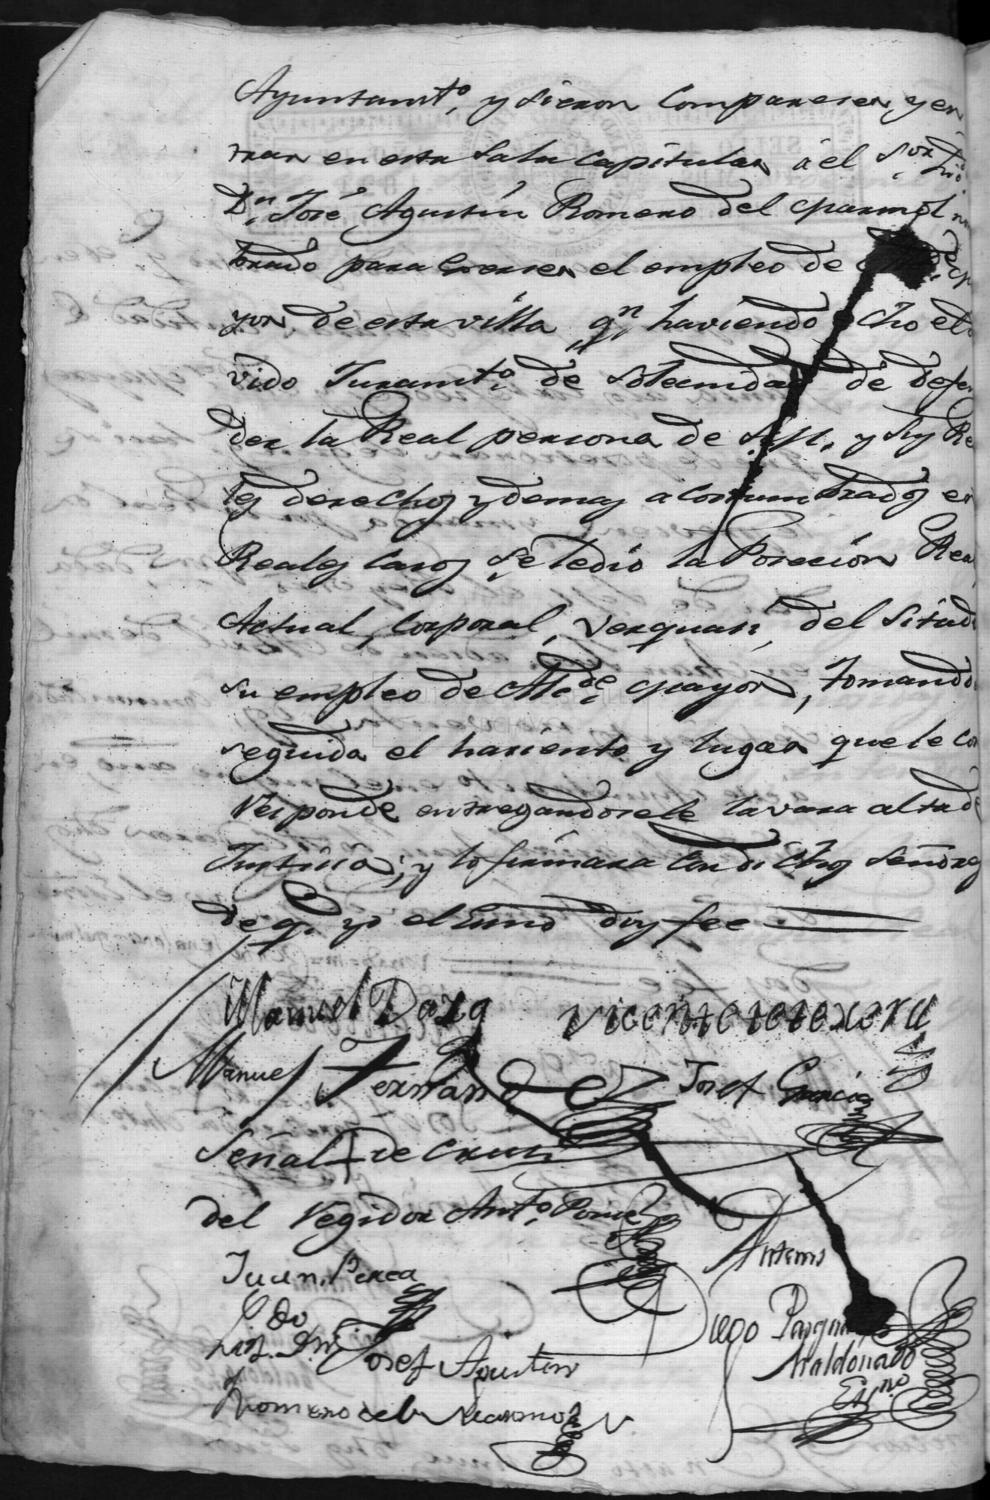 Ayuntamto. y dieron comparecer, y en
trar en esta Sala Capitular á el Sor. Lizdo.
Dn. José Agustin Romero del Marmol nom
brado para exercer el empleo de
yor de esta villa, qn. haviendo echo el
vido Juramto. de solemnidad de defen
der la Real persona de S. M. y sus Rea
les derechos y demas acostumbrados en
Reales casos, se le dio la Posecion Real
Actual, Corporal, Velquasi, del Sitad
su empleo de Alcde. mayor, tomando
seguida el haciento y lugar que le co
rresponde entregandosele la vara alta de
Justicia; y lo firmara con dichos señores
de q. yo el Essno doy fee
Manuel Daza Vicente tetexera
Manuel Fernandez Josef Garcia
Señal + de Cruz
del Regidor Anto. Ponce
Juan Perea
Antemi
Ldo.
Josef Agustin
Diego Pasqual
Maldonado
Romero del Marmol
Esno